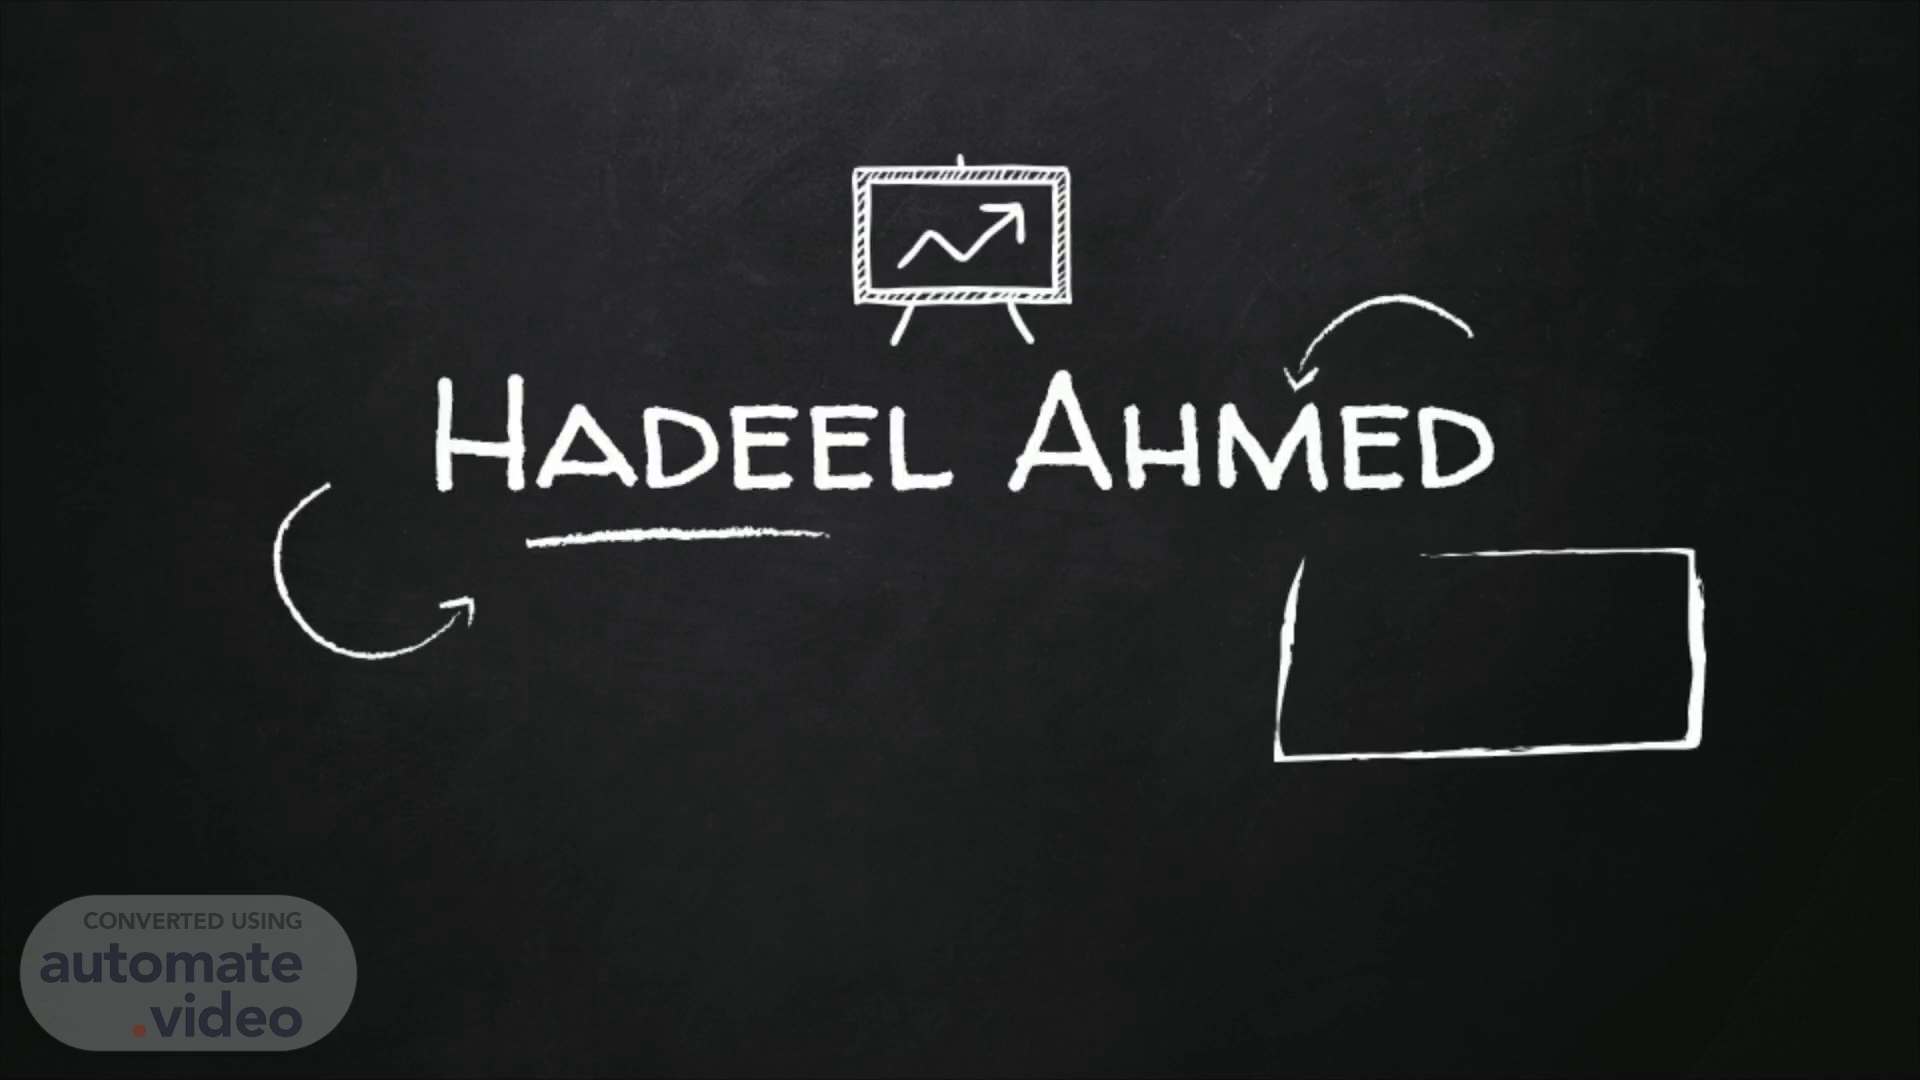 HADEEL AHMED
CONVERTED USING
automate
.video